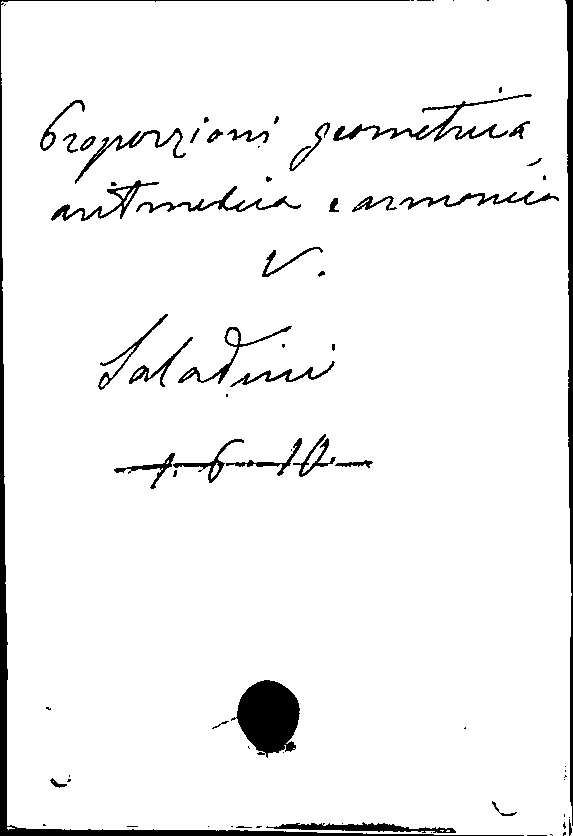 Proporzioni geometrica,
aritmetica e armonica
V.
Saladini
1. 6. 10.